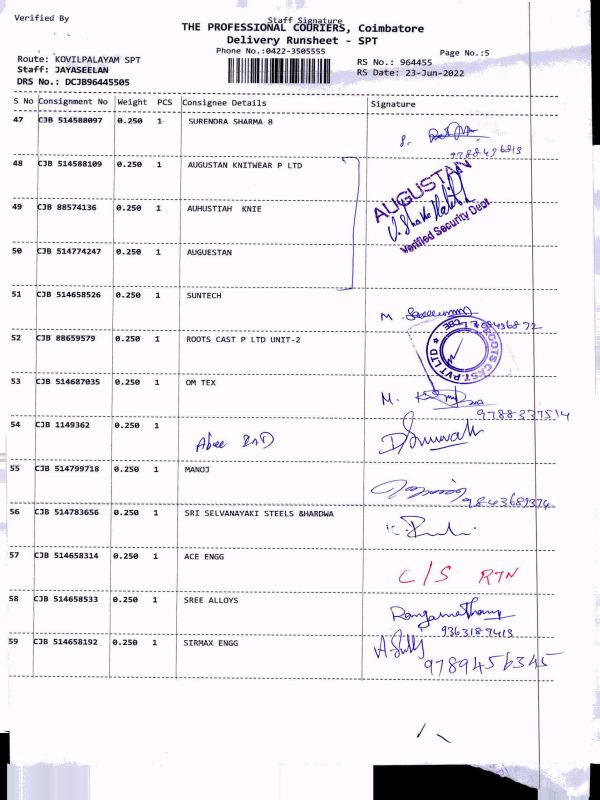 Verified By Staff Signature
THE PROFESSIONAL COURIERS, Coimbatore
Delivery Runsheet - SPT
Phone No.:0422-3505555 Page No.:5
Route: KOVILPALAYAM SPT RS No.: 964455
Staff: JAYASEELAN RS Date: 23-Jun-2022
DRS No.: DCJB96445505
S No Consignment No Weight PCS Consignee Details Signature
47 CJB 514588097 0.250 1 SURENDRA SHARMA 8
9788436813
48 CJB 514588109 0.250 1 AUGUSTAN KNITWEAR P LTD
AUGUSTAN
49 CJB 88574136 0.250 1 AUHUSTIAH KNIE
Verified Security Dept
50 CJB 514774247 0.250 1 AUGUESTAN
51 CJB 514658526 0.250 1 SUNTECH
M.
52 CJB 88659579 0.250 1 ROOTS CAST P LTD UNIT-2
ROOTS CAST PVT LTD ★ CBE
53 CJB 514687035 0.250 1 OM TEX
M.
9788337514
54 CJB 1149362 0.250 1
55 CJB 514799718 0.250 1 MANOJ
9843689374
56 CJB 514783656 0.250 1 SRI SELVANAYAKI STEELS &HARDWA
57 CJB 514658314 0.250 1 ACE ENGG
C/S RTN
58 CJB 514658533 0.250 1 SREE ALLOYS
9363187413
59 CJB 514658192 0.250 1 SIRMAX ENGG
9789456345